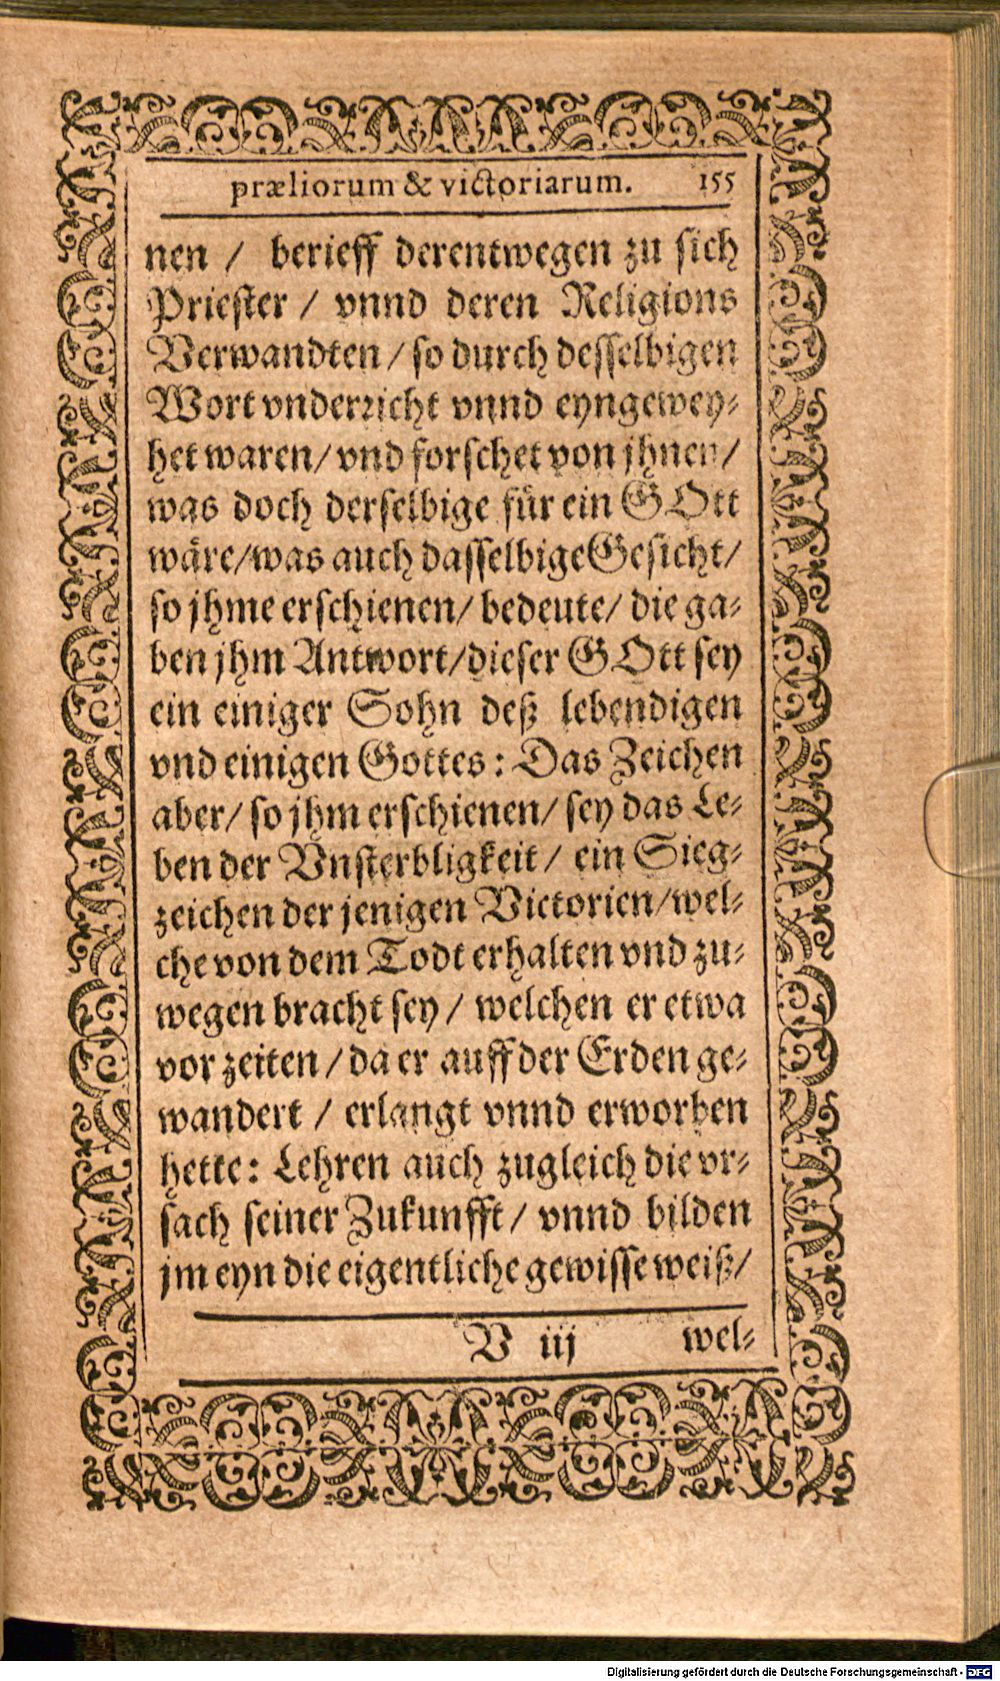 præliorum & victoriarum. 155
nen / berieff derentwegen zu sich
Priester / vnnd deren Religions
Verwandten / so durch desselbigen
Wort vnderricht vnnd eyngewey-
het waren / vnd forschet von jhnen /
was doch derselbige für ein GOtt
wäre / was auch dasselbige Gesicht /
so jhme erschienen / bedeute / die ga-
ben jhm Antwort / dieser GOtt sey
ein einiger Sohn deß lebendigen
vnd einigen Gottes: Das Zeichen
aber / so jhm erschienen / sey das Le-
ben der Vnsterbligkeit / ein Sieg-
zeichen der jenigen Victorien / wel-
che von dem Todt erhalten vnd zu-
wegen bracht sey / welchen er etwa
vor zeiten / da er auff der Erden ge-
wandert / erlangt vnnd erworben
hette: Lehren auch zugleich die vr-
sach seiner Zukunfft / vnnd bilden
jm eyn die eigentliche gewisse weiß /
V iij wel-
Digitalisierung gefördert durch die Deutsche Forschungsgemeinschaft - DFG